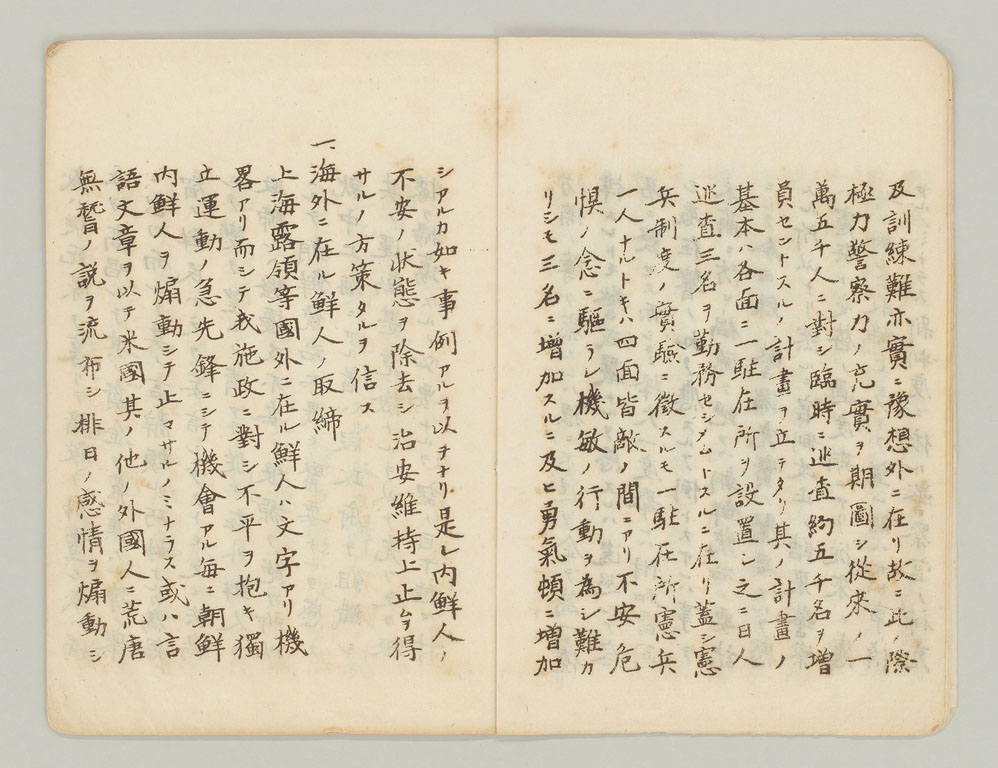 及訓練難亦實ニ豫想外ニ在リ故ニ此ノ際
極力警察力ノ充實ヲ期圖シ從來ノ一
萬五千人ニ對シ臨時ニ巡査約五千名ヲ增
員セントスルノ計畫ヲ立テタリ其ノ計畫ノ
基本ハ各面ニ一駐在所ヲ設置シ之ニ日人
巡査三名ヲ勤務セシメムトスルニ在リ蓋シ憲
兵制度ノ實驗ニ徵スルモ一駐在所憲兵
一人ナルトキハ四面皆敵ノ間ニアリ不安危
惧ノ念ニ驅ラレ機敏ノ行動ヲ為シ難カ
リシモ三名ニ增加スルニ及ヒ勇氣頓ニ增加
シアルカ如キ事例アルヲ以テナリ是レ内鮮人ノ
不安ノ状態ヲ除去シ治安維持上止ムヲ得
サルノ方策タルヲ信ス
一、海外ニ在ル鮮人ノ取締
上海露領等國外ニ在ル鮮人ハ文字アリ機
畧アリ而シテ我施政ニ對シ不平ヲ抱キ獨
立運動ノ急先鋒ニシテ機會アル每ニ朝鮮
内鮮人ヲ煽動シテ止マサルノミナラス或ハ言
語文章ヲ以テ米國其ノ他ノ外國人ニ荒唐
無稽ノ說ヲ流布シ排日ノ感情ヲ煽動シ